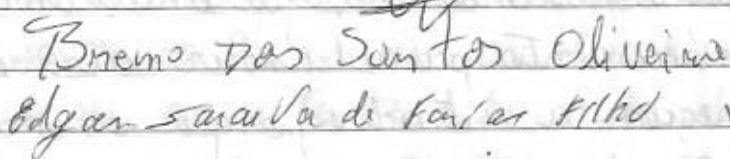 Breno Dos Santos Oliveira
Edgar Saraiva de Farias Filho